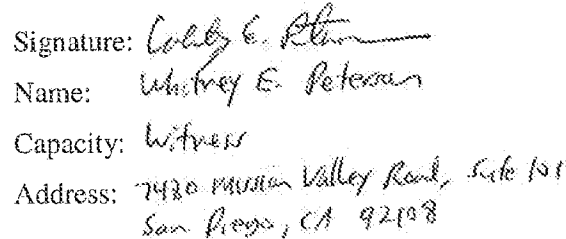 Signature: Whitney E. Peterson
Name: Whitney E. Peterson
Capacity: Witness
Address: 7480 Mission Valley Road, Suite 101
San Diego, CA 92108